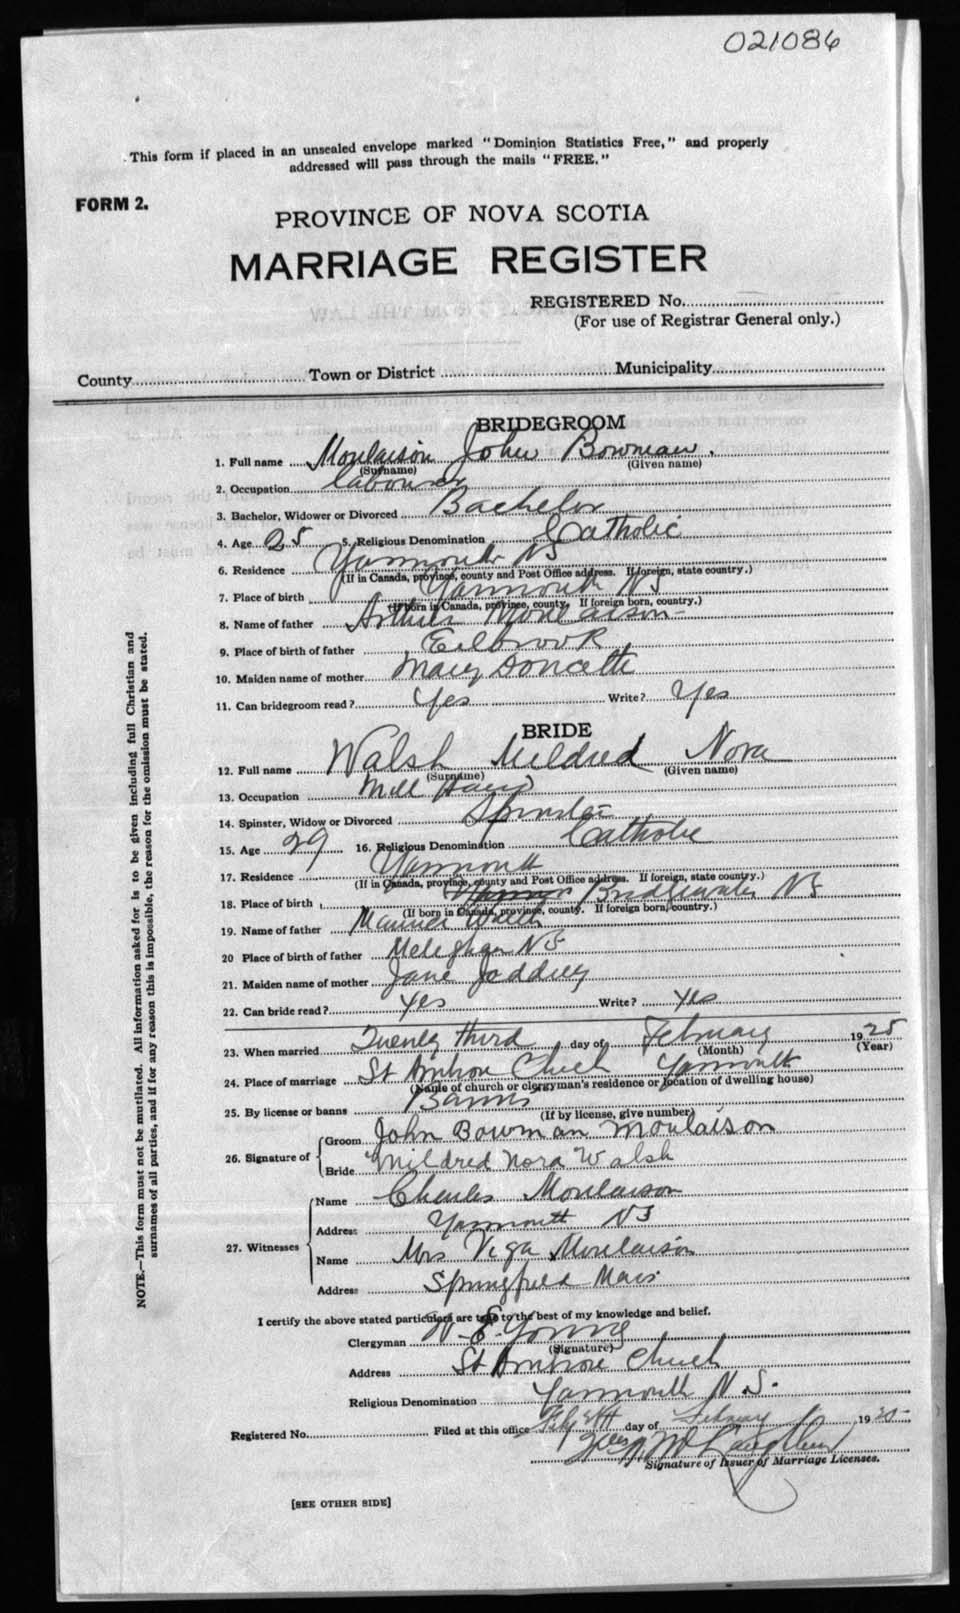 021086
This form if placed in an unsealed envelope marked "Dominion Statistics Free," and properly
addressed will pass through the mails "FREE."
FORM 2.
PROVINCE OF NOVA SCOTIA
MARRIAGE REGISTER
REGISTERED No.
(For use of Registrar General only.)
County Town or District Municipality
BRIDEGROOM
1. Full name Moulaison John Bowman.
(Surname) (Given name)
2. Occupation labourer
3. Bachelor, Widower or Divorced Bachelor
4. Age 25 5. Religious Denomination Catholic
6. Residence Yarmouth NS
(If in Canada, province, county and Post Office address. If foreign, state country.)
7. Place of birth Yarmouth NS
(If born in Canada, province, county. If foreign born, country.)
8. Name of father Arthur Moulaison
9. Place of birth of father Eelbrook
10. Maiden name of mother Mary Doucette
11. Can bridegroom read? Yes Write? Yes
BRIDE
12. Full name Walsh Mildred Nora
(Surname) (Given name)
13. Occupation Mill Hand
14. Spinster, Widow or Divorced Spinster
15. Age 29 16. Religious Denomination Catholic
17. Residence Yarmouth
(If in Canada, province, county and Post Office address. If foreign, state country.)
18. Place of birth Bridgewater NS
(If born in Canada, province, county. If foreign born, country.)
19. Name of father Maurice
20 Place of birth of father Meteghan NS
21. Maiden name of mother Jane Joddrey
22. Can bride read? Yes Write? Yes
23. When married Twenty third day of February 1925
(Month) (Year)
24. Place of marriage St Ambrose Church Yarmouth
(Name of church or clergyman's residence or location of dwelling house)
25. By license or banns Banns
(If by license, give number)
26. Signature of Groom John Bowman Moulaison
Bride Mildred Nora Walsh
27. Witnesses Name Charles Moulaison
Address Yarmouth NS
Name Mrs Viga Moulaison
Address Springfield Mass.
I certify the above stated particulars are true to the best of my knowledge and belief.
Clergyman W. E. Young
(Signature)
Address St Ambrose Church
Religious Denomination Yarmouth N.S.
Registered No. Filed at this office day of February 1925
McLaughlin
Signature of Issuer of Marriage Licenses.
[SEE OTHER SIDE]
NOTE.—This form must not be mutilated. All information asked for is to be given including full Christian and
surnames of all parties, and if for any reason this is impossible, the reason for the omission must be stated.